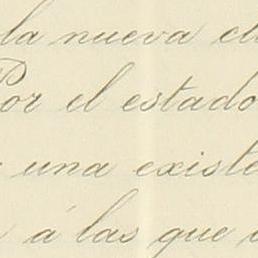 la nueva
Por el estado
una existe
á las que